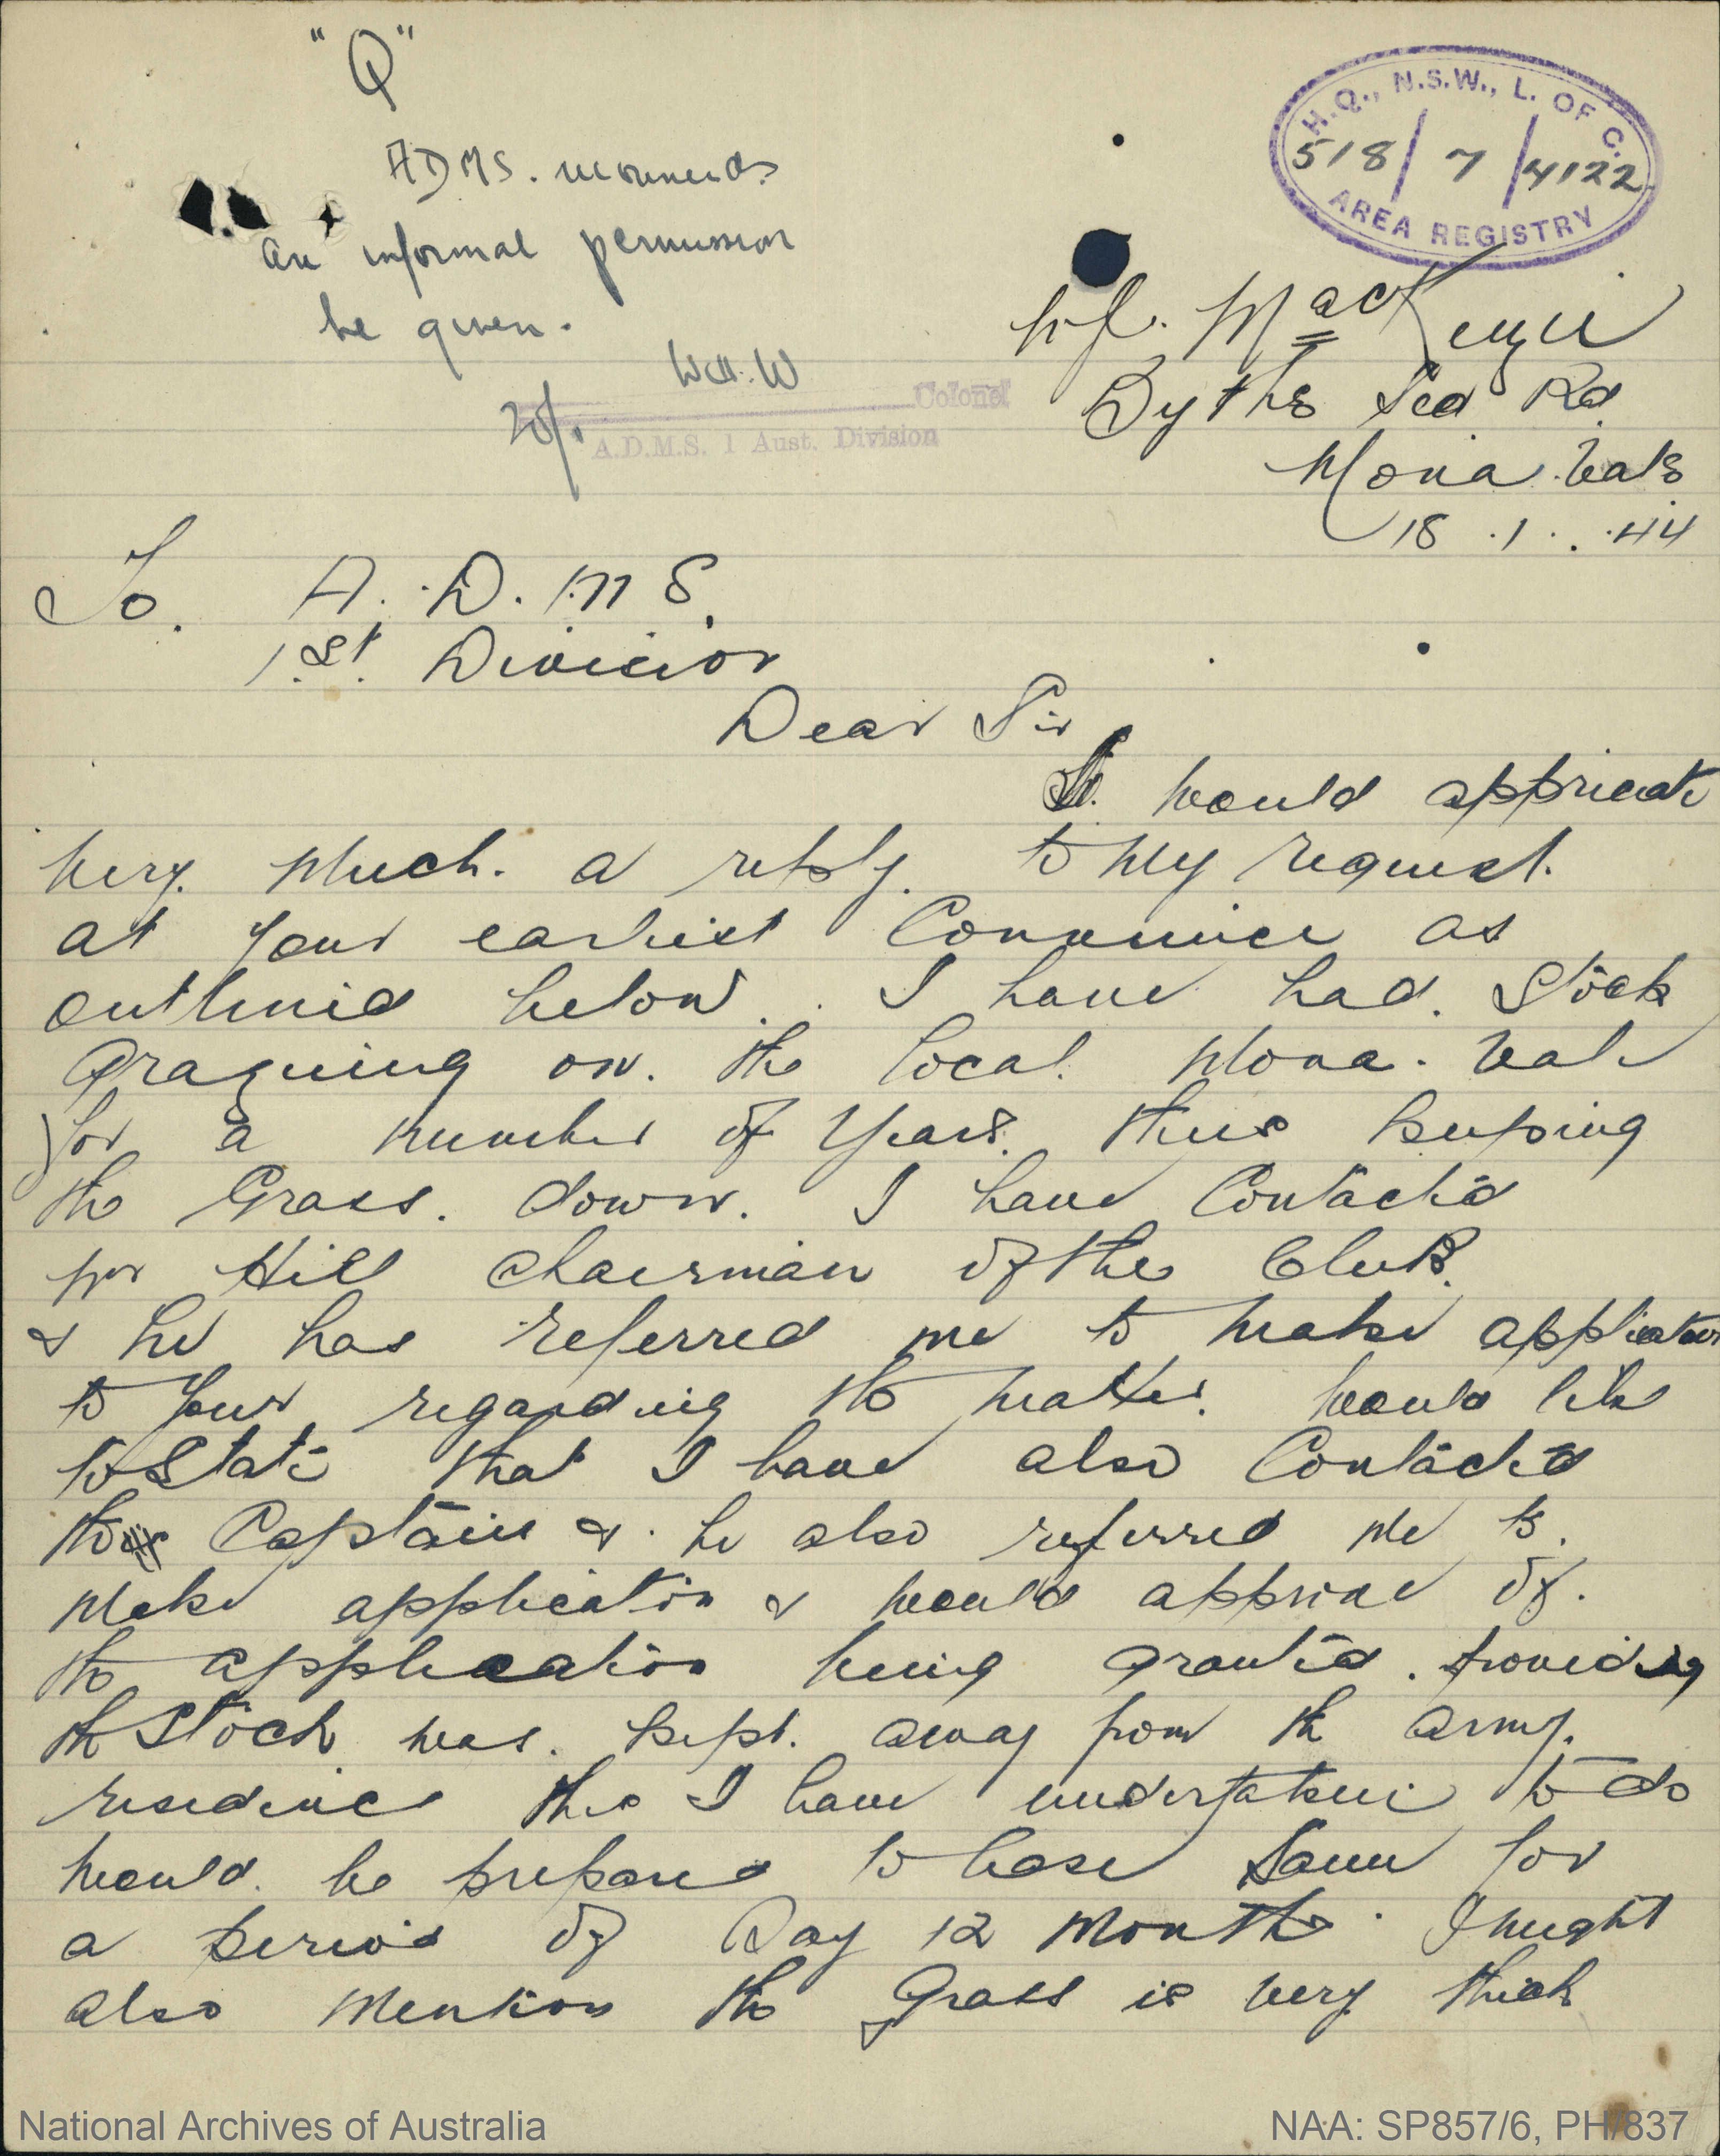 "Q"
ADMS. recommends
an informal permission
be given.
W.W
Colonel
A.D.M.S. 1 Aust. Division
H.Q., N.S.W., L. OF C.
518/7/4122
AREA REGISTRY
MacKenzie
Sea Rd
Mona Vale
18.1.44
To. A.D.M.S.
1st. Division
Dear Sir
I would appriciate
very much. a reply. to my request.
at your earliest Convenience as
outlined below. I have had. Stock
Grazing on. the local. Mona. Vale
for a number of years. thus keeping
the Grass. down. I have Contacted
Mr Hill Chairman of the Club.
& he has referred me to make application
to your regarding the matter. Would like
to State that I have also Contacted
the Captain & he also referred me to.
make application & would approve of.
the application being granted. providing
the Stock was. kept. away from the army.
residence this I have undertaken to do
would. be prepared to lease Same for
a period of Say 12 Months. I might
also mention the Grass is very thick
National Archives of Australia
NAA: SP857/6, PH/837